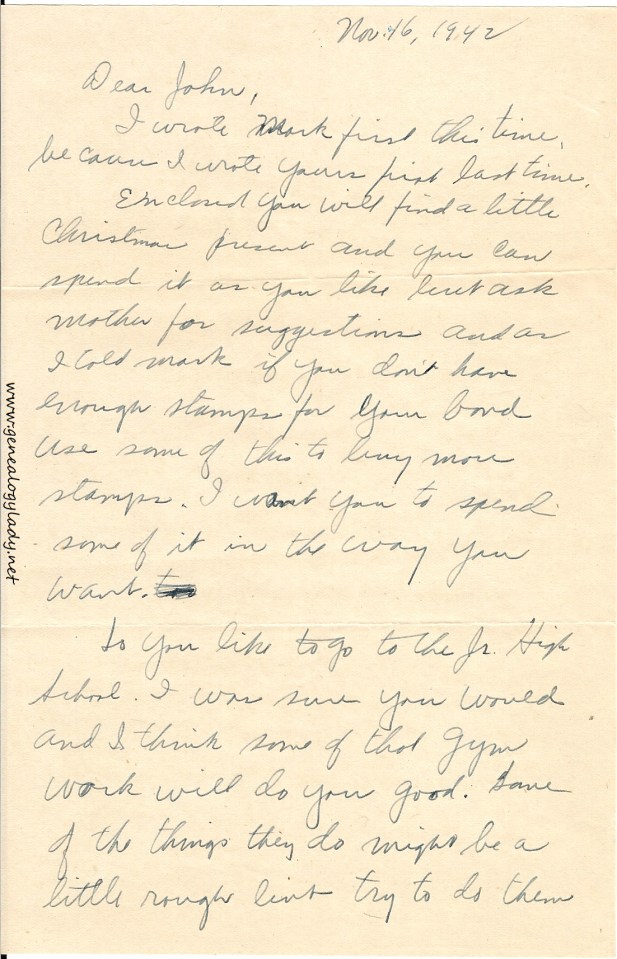 Nov. 16, 1942
Dear John,
I wrote Mark first this time,
because I wrote yours first last time.
Enclosed you will find a little
Christmas present and you can
spend it as you like but ask
mother for suggestions and as
I told mark if you don't have
enough stamps for your bond
use some of this to buy more
stamps. I want you to spend
some of it in the way you
want.
So you like to go to the Jr. High
School. I was sure you would
and I think some of that gym
work will do you good. Some
of the things they do might be a
little rough but try to do them
www.genealogylady.net